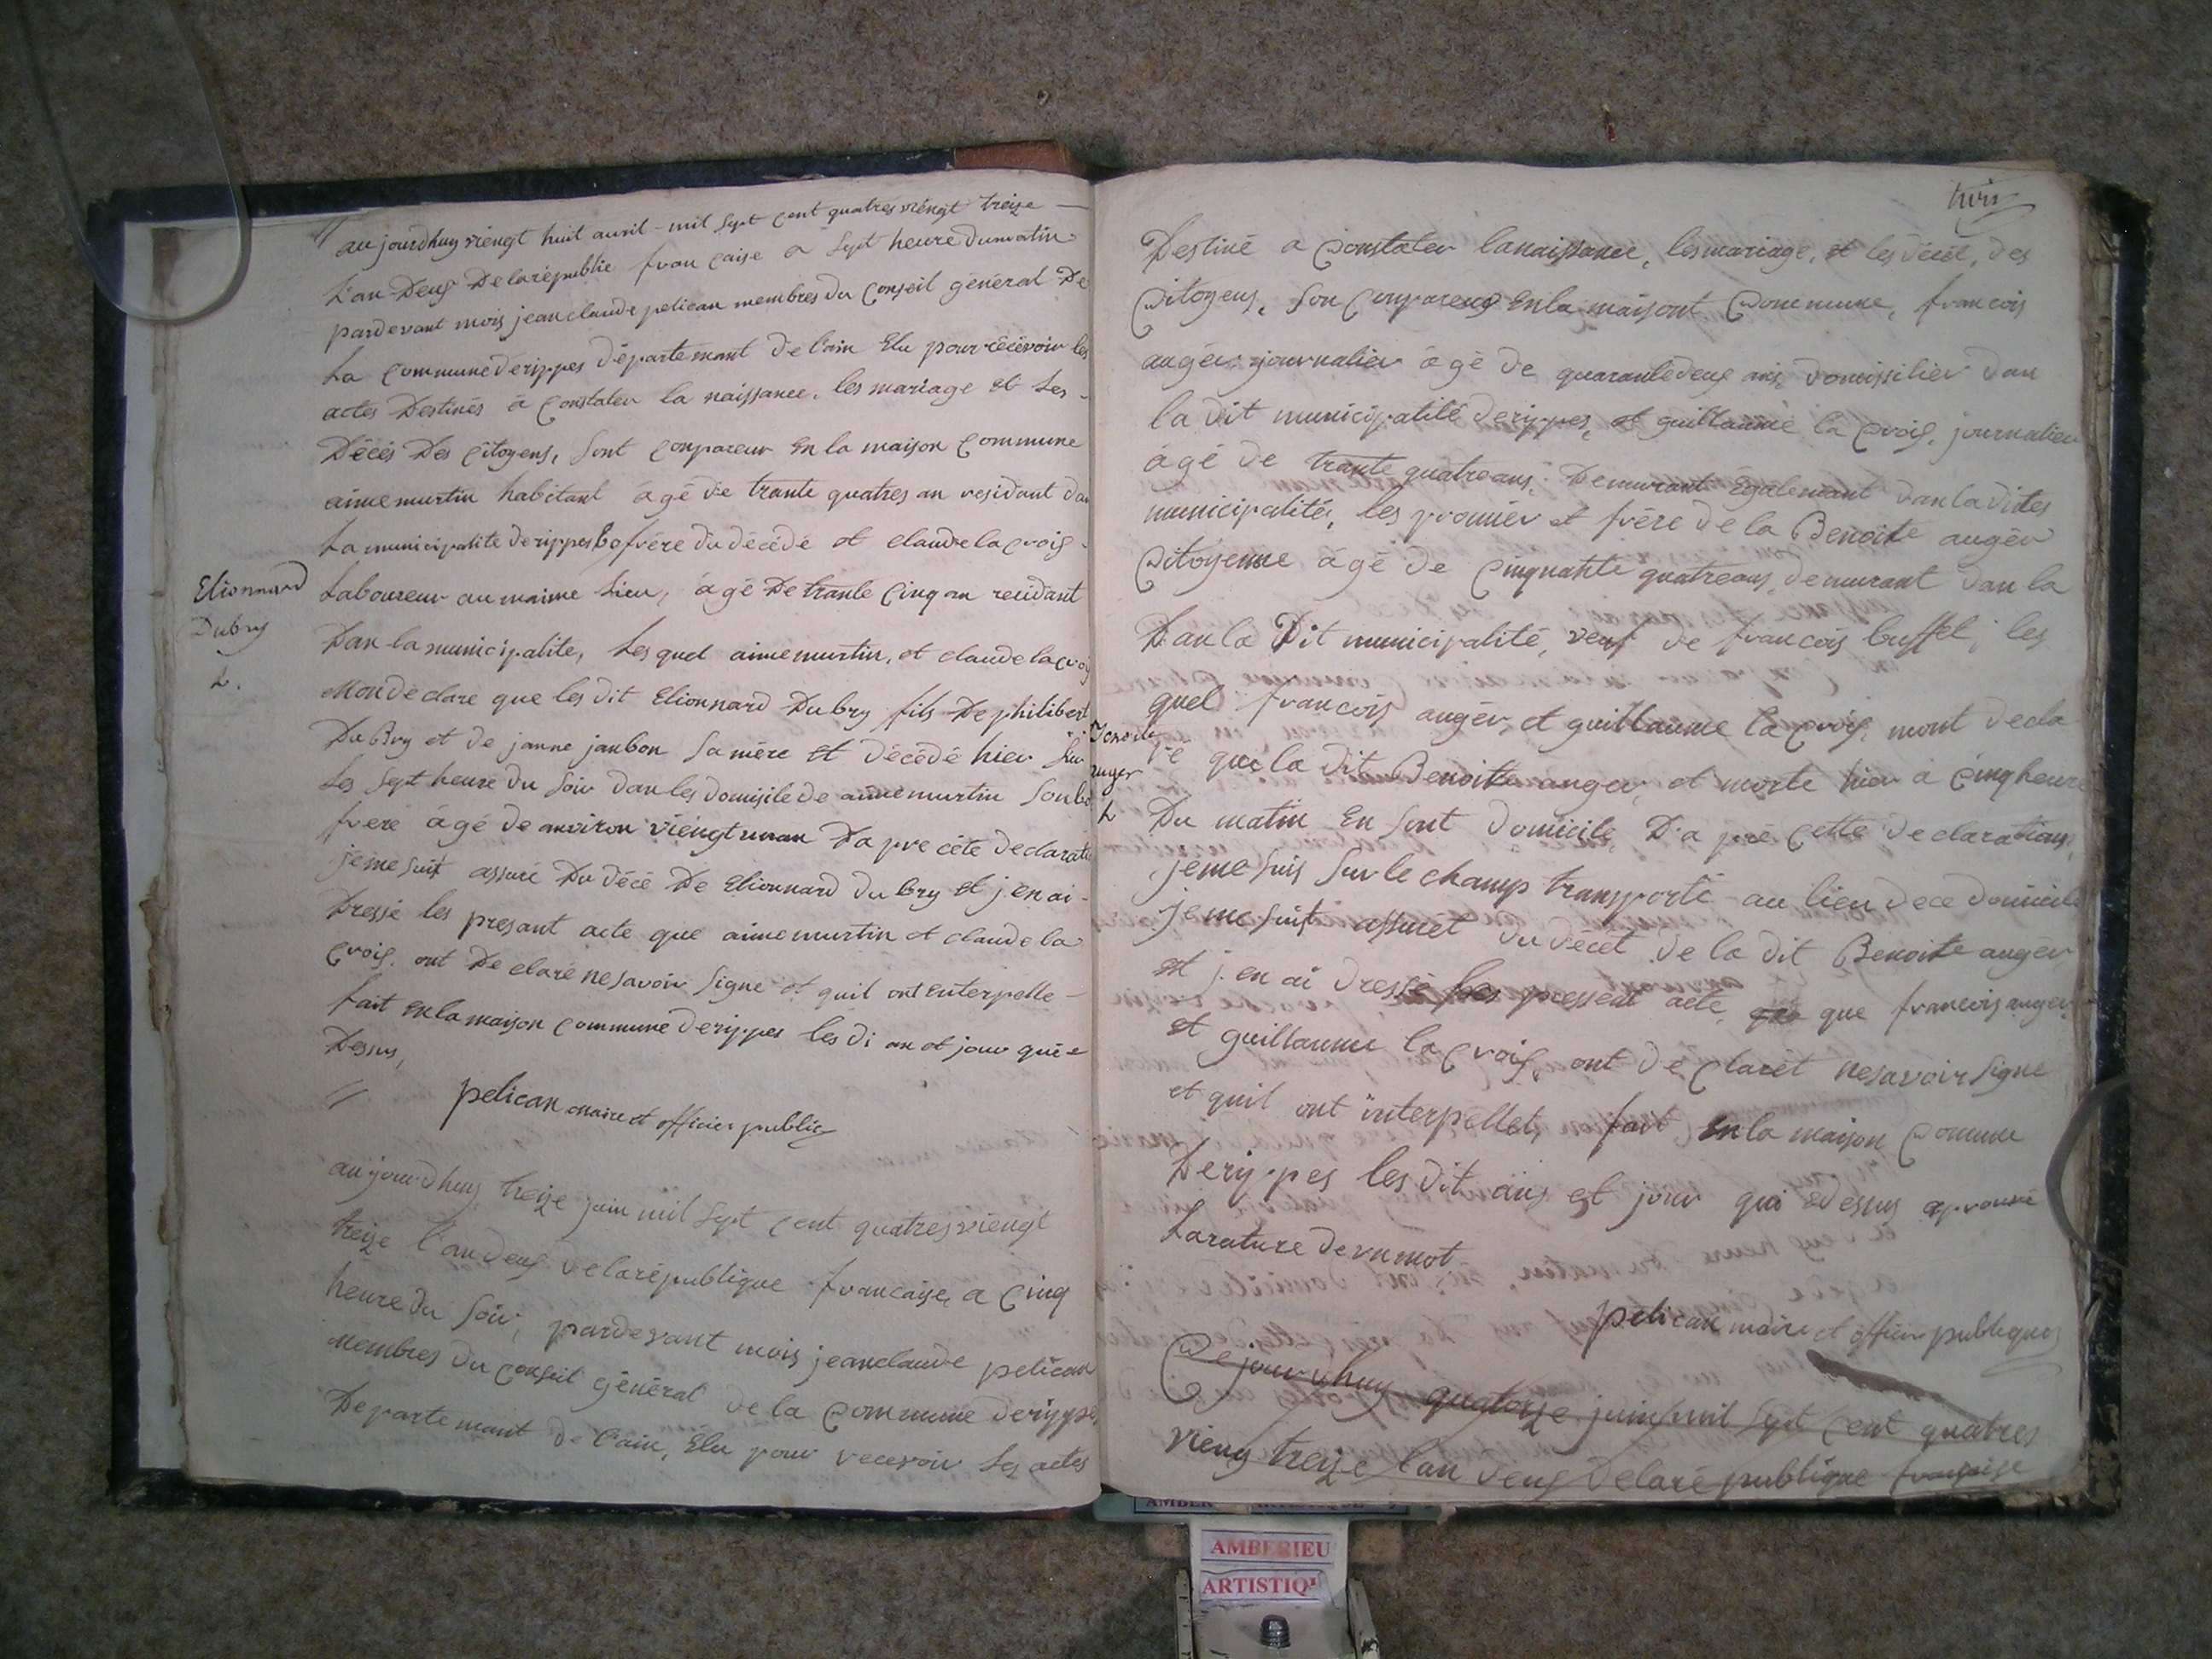 aujourdhuy viengt huit avril mil sept cent quatres viengt treize
L'an Deux De la republie francaise a sept heure du matin
pardevant mois jean claude pelican membres du Conseil général De
La Commune derippes département de l'ain Elu pour récévoir les
actes Destinés à Constater la naissance, les mariage et Les
Décés Des Citoyens, sont Conpareux En la maison Commune
aime murtin habitant âgé de trante quatres an residant dan
La municipalite derippes bo frére du décédé et claude la Croix
Laboureur au maime Lieu, âgé De trante Cinq an residant
Elionnard
Dubry
Dan la municipalite, Les quel aime murtin, et claude la Croix
Mon déclare que les dit Elionnard Dubry fils De philibert
DuBry et de janne janbon Sa mére Et Décédé hier Sur
Les Sept heure du Soir Dan les domisile de aime murtin Son bo
frere âgé de anviron viengt un an Da pre céte Declarati
je me suit assuré Du décé De Elionnard Du bry et j'en ai
Dressé les presant acte que aime murtin et claude la
Croix. ont De claré ne savoir Signe et quil ont enterpelle
fait En la maison Commune derippes les di an et jour que
Dessus,
pelican maire et officier public
aujourdhuy treize juin mil Sept Cent quatres viengt
treize l'an deux de la républigue francaise, a Cinq
heure du Soir, pardevant mois jean claude pelican
Membres du Conseil général de la Commune derippes,
Departemant de l'ain, Elu pour recevoir Les actes
trois
Destiné a Constater la naissance, les mariage, et les décét, des
Citoyens, Son Conpareux En la maisont Commune, francois
augér journalier âgé de quarante deux ans, domissilier dan
la dit municipalité derippes, et guillaume la Croix, journalier
âgé de trante quatre ans, Demurant également dan la dites
municipalités, les promiér et frére de la Benoite augér
Citoyenne âgé de Cinquante quatre ans, demurant dan la
Dan la Dit municipalité, veuf de francois buffet; les
quel francois augér, et guillaume la Croix, mont decla
Benoite
auger
ré que la dit Benoitte auger, et morte hier à Cinq heure
Du matin En sont domicile, D'a pré cette declaration,
je me suis Sur le champ transporté au lieu de ce domicile
je me suit assurét du décét de la dit Benoite auger
et j'en ai dressé les pressent acte, que que francois auger
et guillaume la Croix, ont dé Clarét ne savoir Signe
et quil ont interpellet, fait En la maison Comune
Derippes les dit ans et jour qui dessus aprouvé
La rature de un mot
pelican maire et officier publique
Ce jourdhuy quatorze juin mil Sept Cent quatres
vieng treize l'an deux De la républigue francaise
AMBERIEU
ARTISTIQ